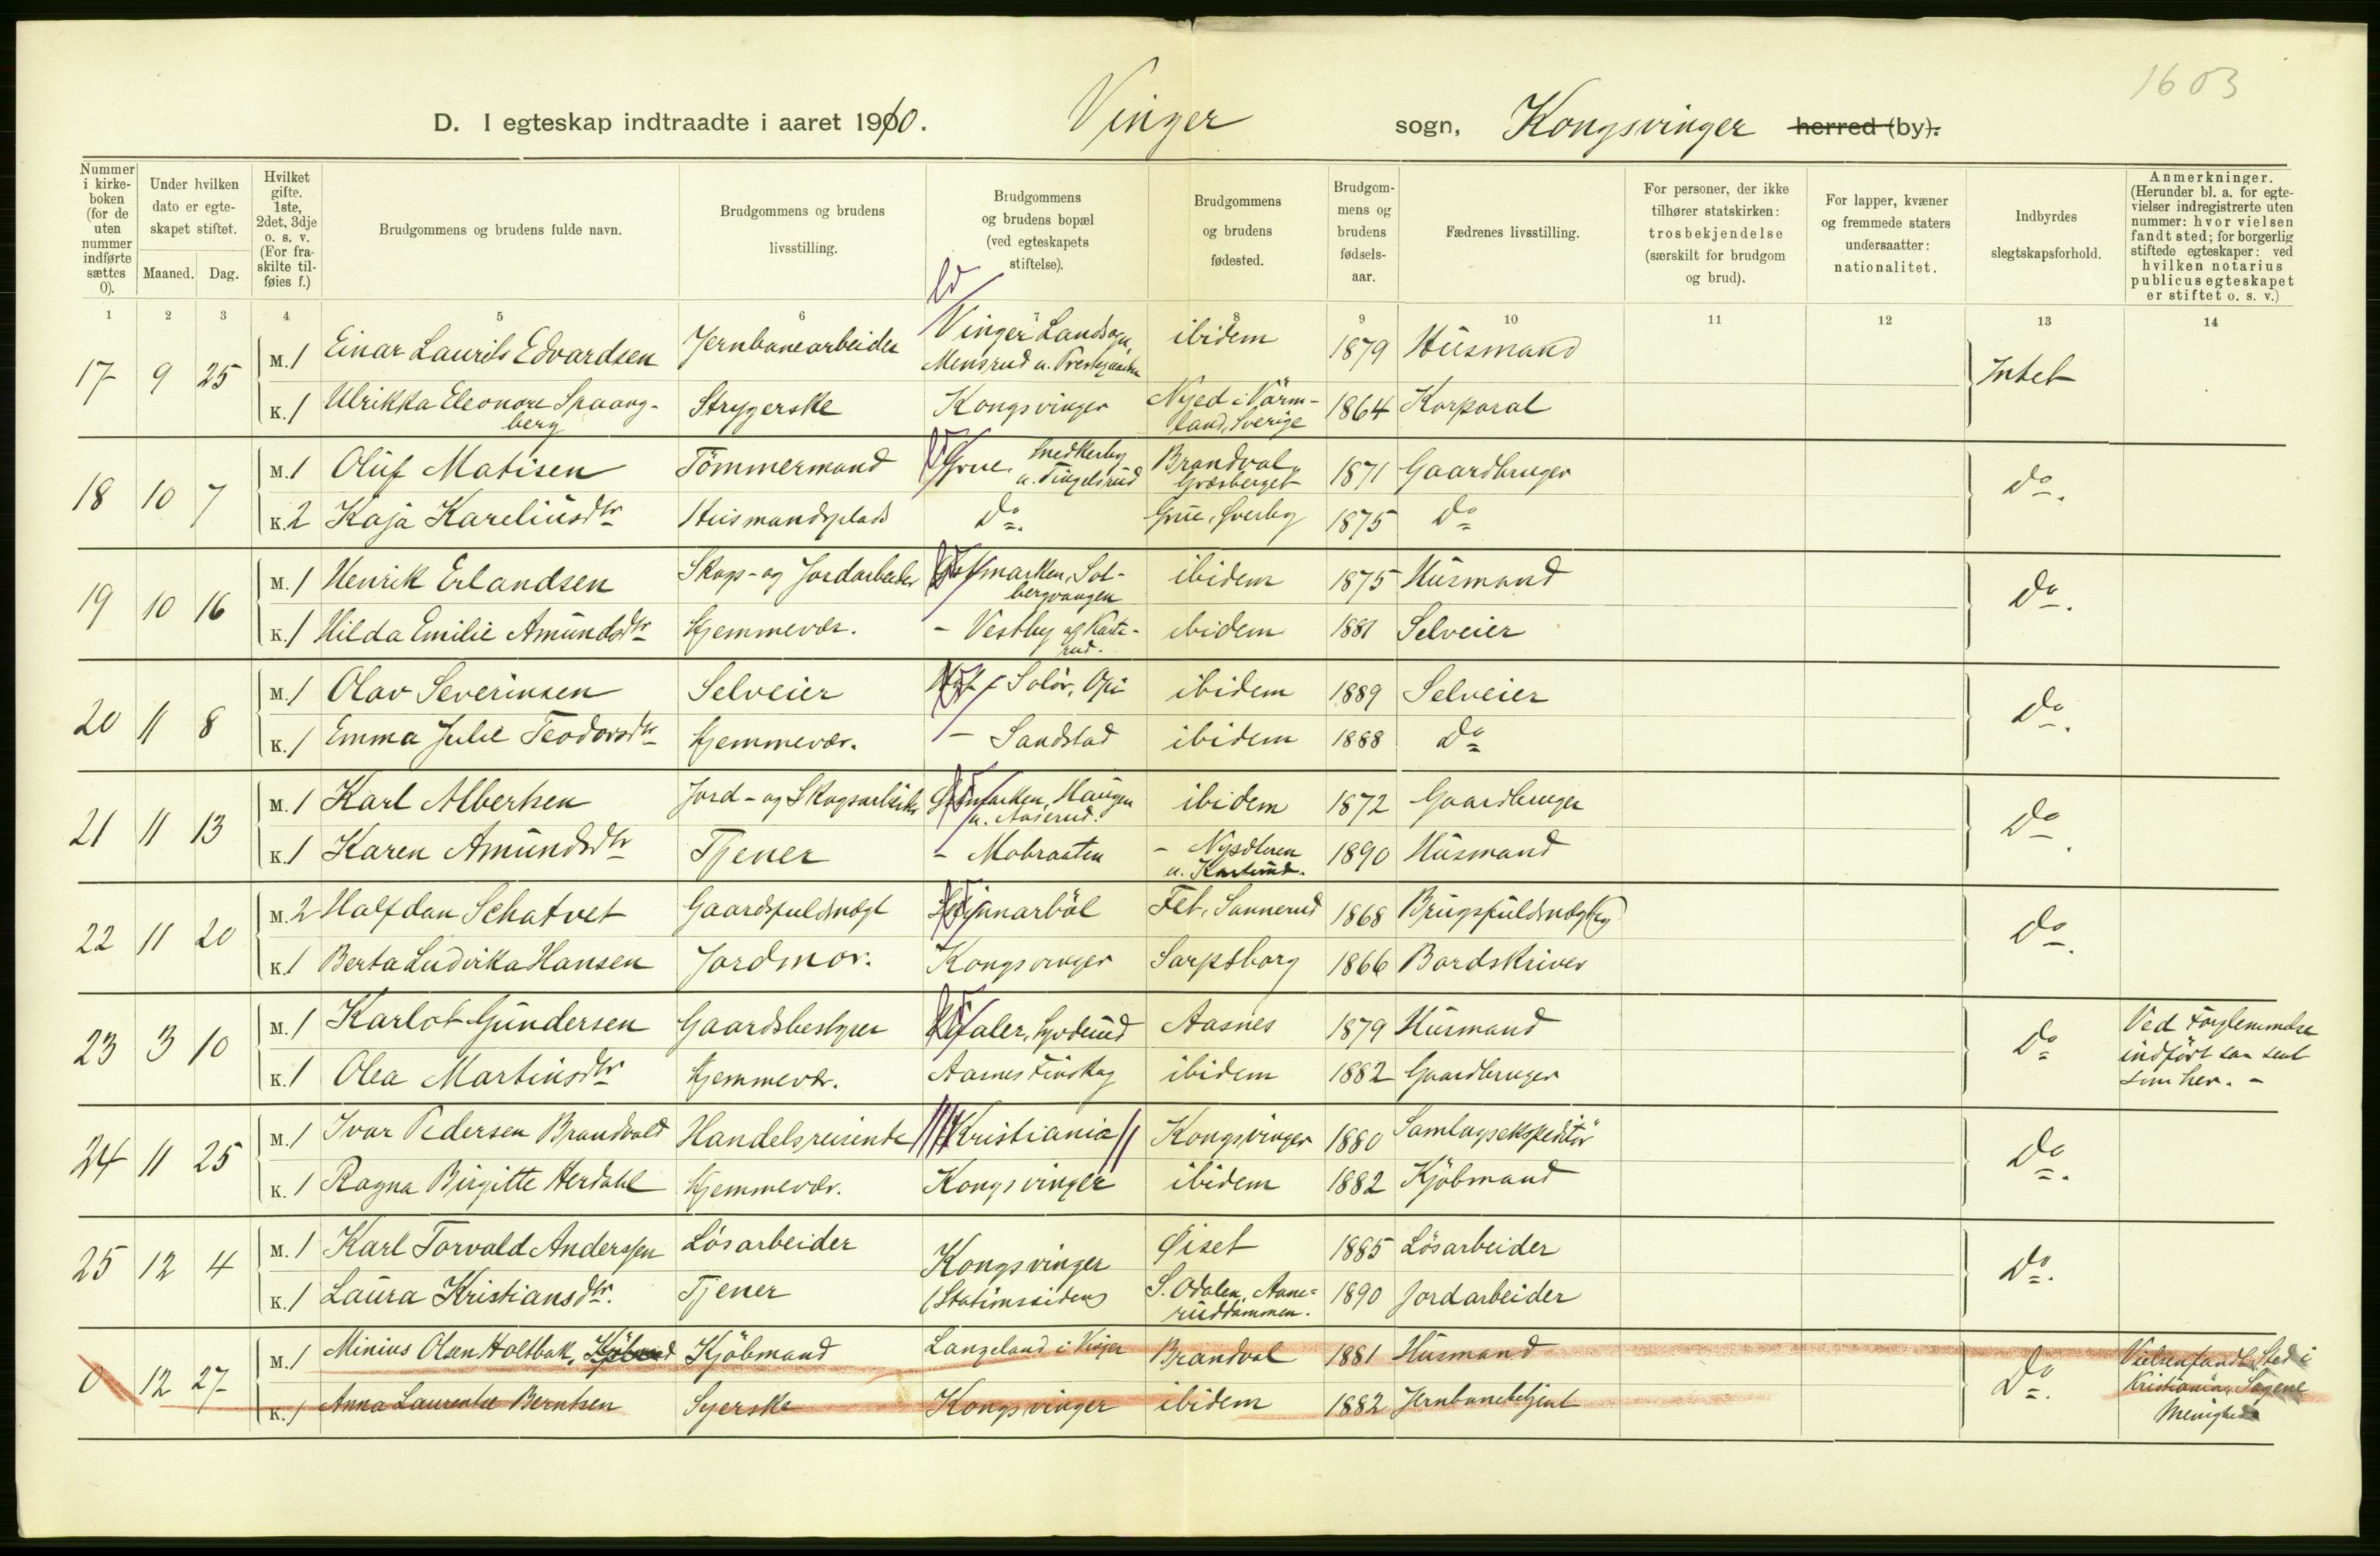 1603
D. I egteskap indtraadte i aaret 1910. Vinger sogn, Kongsvinger herred (by).
Nummer i kirke-boken (for de uten nummer indførte sættes 0).
Under hvilken dato er egte-skapet stiftet.
Maaned. Dag.
Hvilket gifte. 1ste, 2det, 3dje o. s. v. (For fra-skilte til-føies f.)
Brudgommens og brudens fulde navn.
Brudgommens og brudens livsstilling.
Brudgommens og brudens bopæl (ved egteskapets stiftelse).
Brudgommens og brudens fødested.
Brudgom-mens og brudens fødsels-aar.
Fædrenes livsstilling.
For personer, der ikke tilhører statskirken: trosbekjendelse (særskilt for brudgom og brud).
For lapper, kvæner og fremmede staters undersaatter: nationalitet.
Indbyrdes slegtskapsforhold.
Anmerkninger. (Herunder bl. a. for egte-vielser indregistrerte uten nummer: hvor vielsen fandt sted; for borgerlig stiftede egteskaper: ved hvilken notarius publicus egteskapet er stiftet o. s. v.)
1 2 3 4 5 6 7 8 9 10 11 12 13 14
17 9 25 M. 1 Einar Laurits Edvardsen Jernbanearbeider Vinger Landsogn, Mensrud u. Prestegaarden ibidem 1879 Husmand Intet
K. 1 Ulrikka Eleonore Spaangberg Strygerske Kongsvinger Nyed i Värmland, Sverige 1864 Korporal
18 10 7 M. 1 Oluf Matisen Tömmermand Grue, Snedkerby u. Tingelsrud Brandval, Græsberget 1871 Gaardbruger Do.
K. 2 Kaja Kareliusdtr Husmandsplads Do. Grue, Sverby 1875 Do
19 10 16 M. 1 Henrik Erlandsen Skogs- og Jordarbeider marken, Solbergvangen ibidem 1875 Husmand Do.
K. 1 Hilda Emilie Amundsdtr Hjemmevær. - Vestby af Kasterud. ibidem 1881 Selveier
20 11 8 M. 1 Olav Severinsen Selveier Hof i Solör, Opi ibidem 1889 Selveier Do.
K. 1 Emma Julie Teodorsdtr Hjemmevær. - Sandstad ibidem 1888 Do
21 11 13 M. 1 Karl Albertsen Jord- og Skogsarbeider Haugen u. Aaserud. ibidem 1872 Gaardbruger Do.
K. 1 Karen Amundsdtr Tjener - Mobraaten - u. 1890 Husmand
22 11 20 M. 2 Halfdan Schatvet Gaardsfuldmægt Fet, Sannerud 1868 Brugsfuldmægtig Do.
K. 1 Berta Ludvika Hansen Jordmor. Kongsvinger Sarpsborg 1866 Bordskriver
23 3 10 M. 1 Karlot Gundersen Gaardsbestyrer Vaaler, Aasnes 1879 Husmand Do Ved Forglemmelse indfört saa sent som her. -
K. 1 Olea Martinsdtr Hjemmevær. Aasnes Finskog ibidem 1882 Gaardbruger
24 11 25 M. 1 Ivar Pedersen Brandvold Handelsreisende Kristiania Kongsvinger 1880 Samlagsekspeditör Do.
K. 1 Ragna Birgitte Herdahl Hjemmevær. Kongsvinger ibidem 1882 Kjöbmand
25 12 4 M. 1 Karl Torvald Anderssen Lösarbeider Kongsvinger (Stationssiden) Øiset 1885 Lösarbeider Do.
K. 1 Laura Kristiansdtr. Tjener S. Odalen, Aaneruddammen. 1890 Jordarbeider
0 12 27 M. 1 Minius Olsen Holtbak, Kjöbmand Kjöbmand Langeland i Vinger Brandval 1881 Husmand Do. Vielsen fandt Sted i Kristiania, Sagene Menighed
K. 1 Anna Laurentse Berntsen Syerske Kongsvinger ibidem 1882 Jernbanebetjent